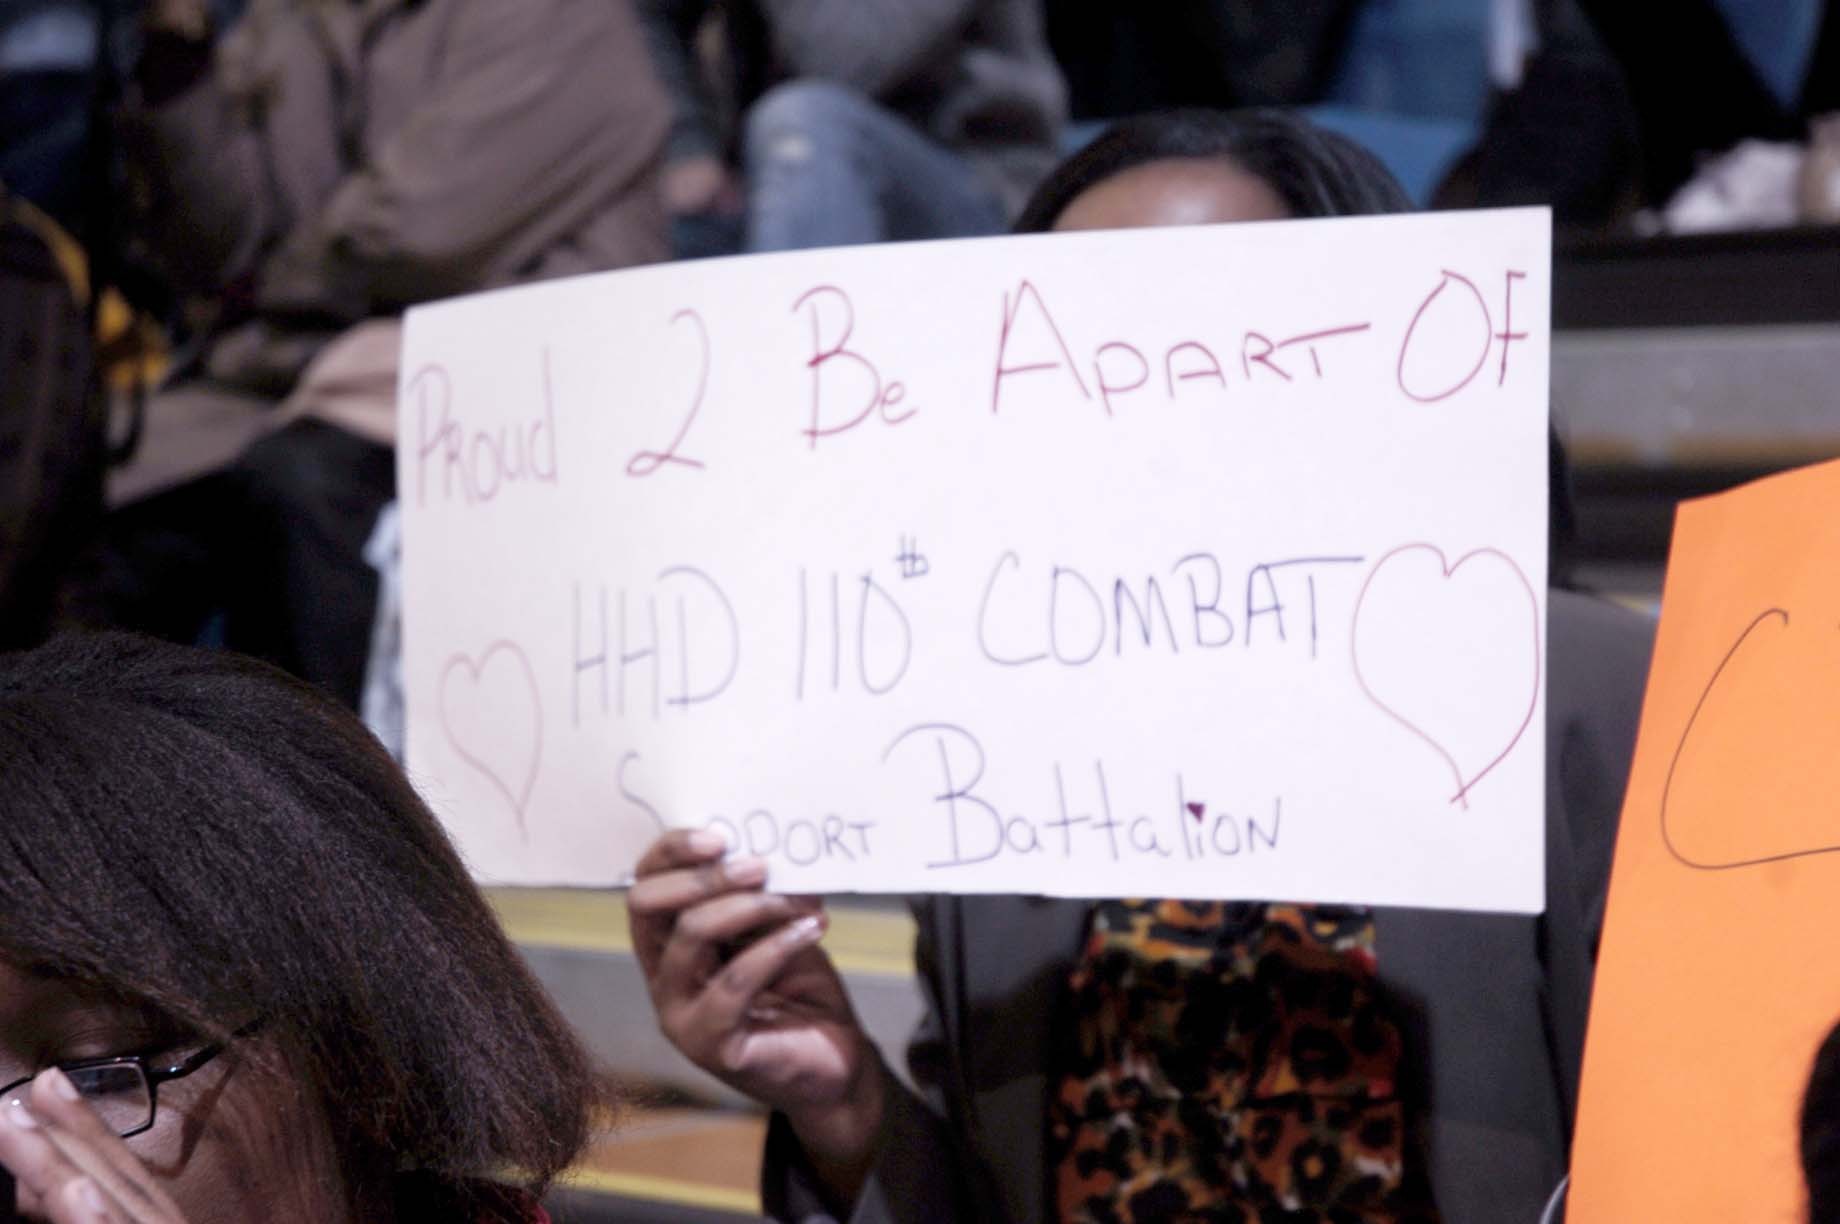 Proud 2 Be Apart Of
HHD 110th COMBAT
Support Battalion
C